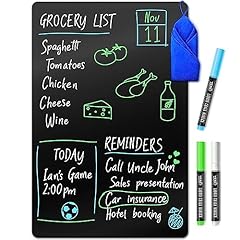 GROCERY LIST
Nov
11
Spaghetti
Tomatoes
Chicken
Cheese
Wine
TODAY
Ian's Game
2:00pm
REMINDERS
Call Uncle John
Sales presentation
Car insurance
Hotel booking